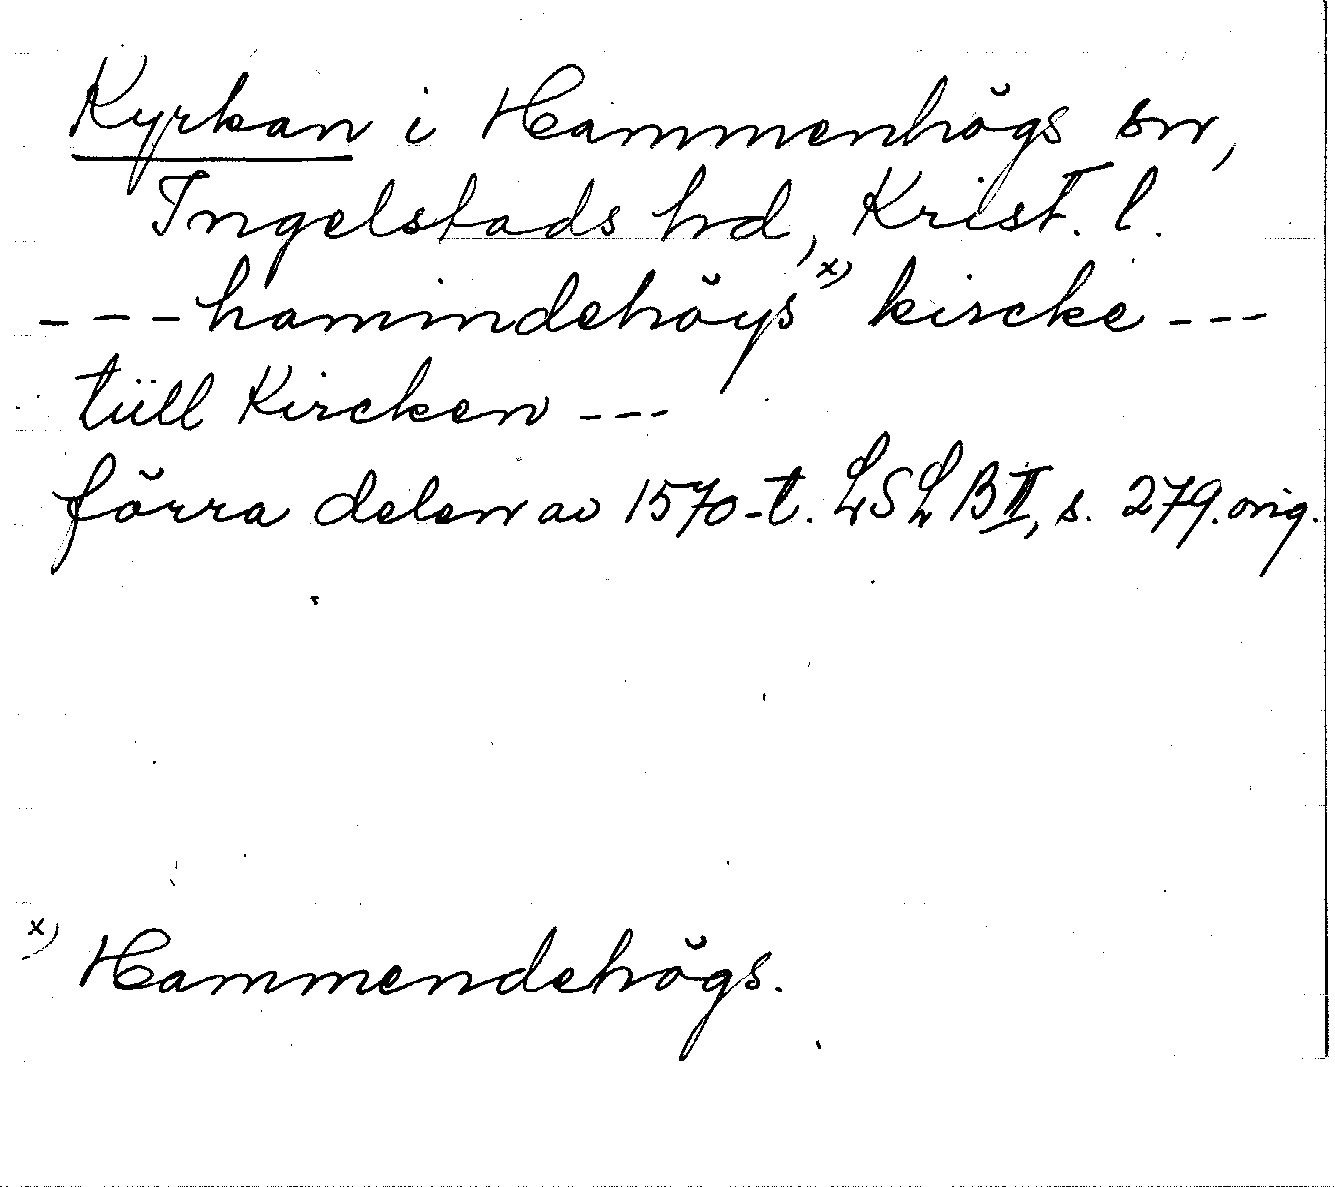 Kyrkan i Hammenhögs sn,
Ingelstads hd, Krist. l.
---hamindehöys x) kircke---
tüll Kircken---
förra delen av 1570-t. LSLB II, s. 279. orig.
x) Hammendehögs.